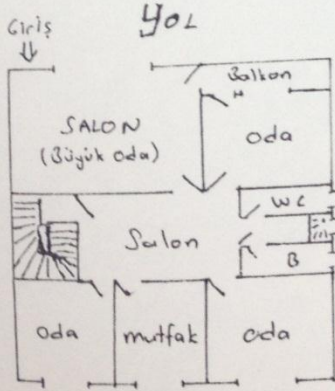 YOL
Giriş
Balkon
SALON
(Büyük oda)
oda
WC
Salon
B
Oda
mutfak
oda